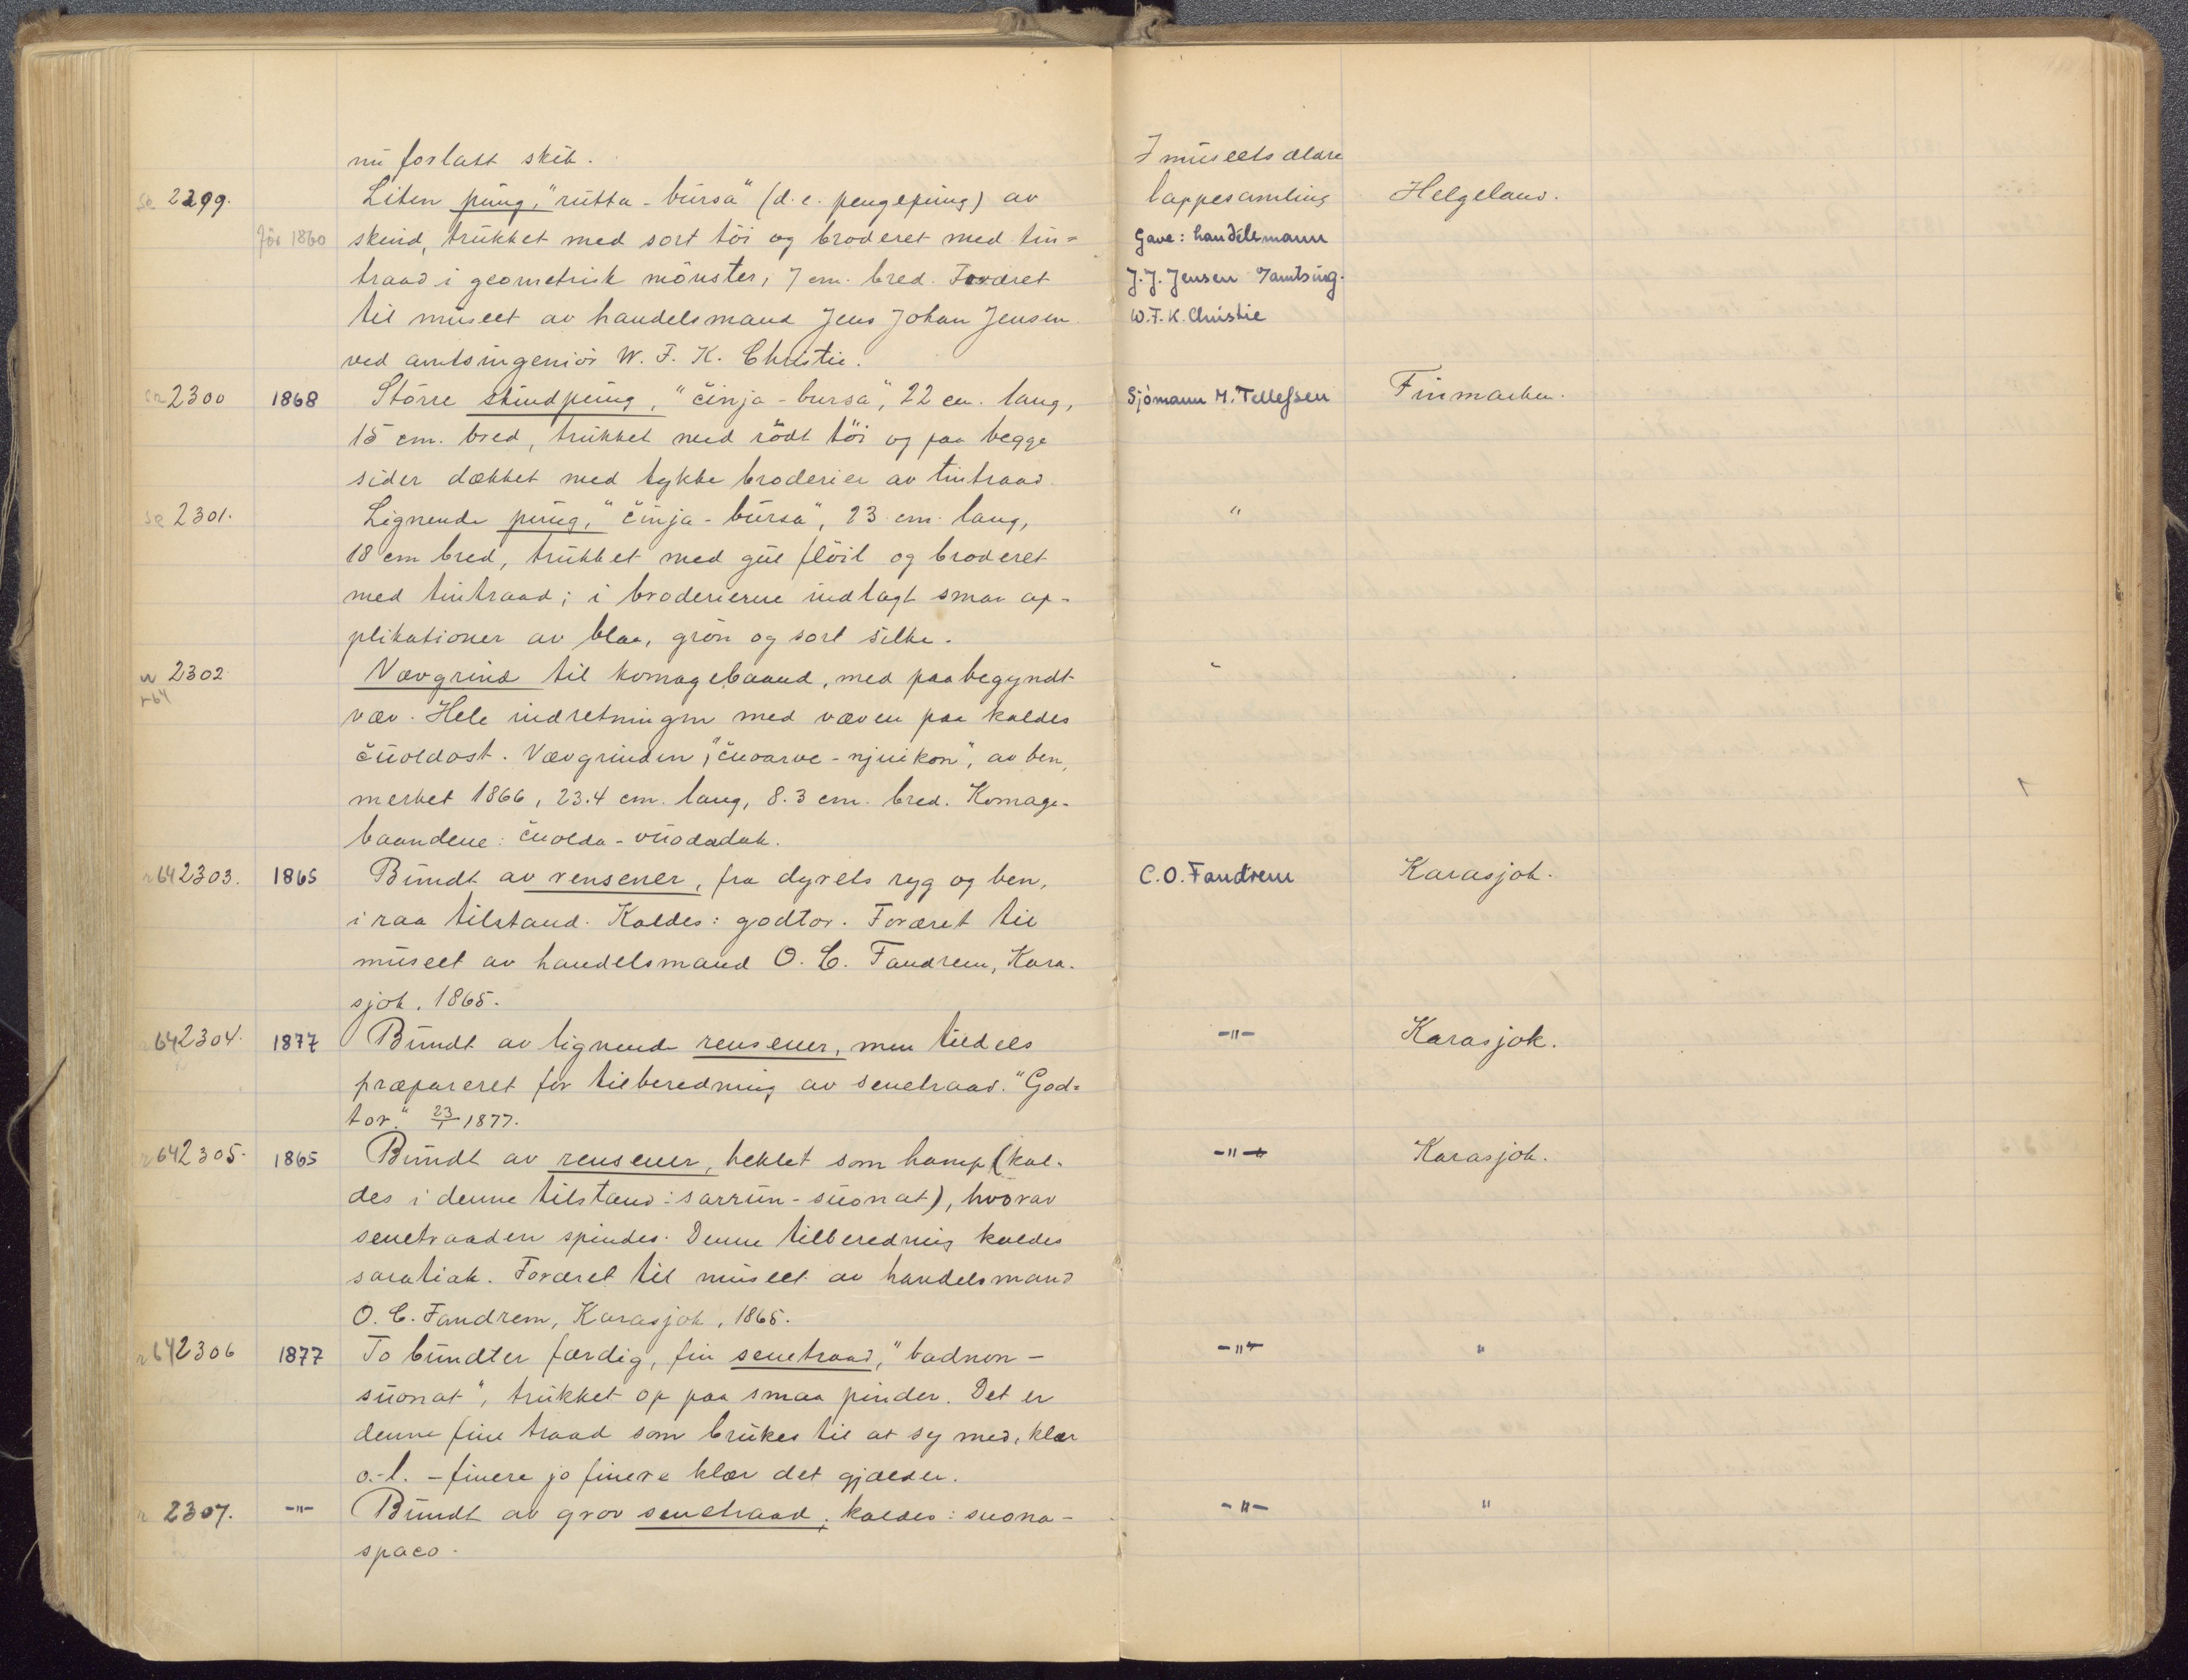 nu forlatt skib. I museets ældre
se 2299. Liten pung, "rutta-bursa" (d.e. pengepung) av lappesamling Helgeland.
før 1860 skind, trukket med sort töi og broderet med tin= Gave: handelsmann
traad i geometrisk mönster, 7 cm. bred. Foræret J.J. Jensen /amtsing.
til museet av handelsmand Jens Johan Jensen W.F.K. Christie
ved amtsingeniör W. F. K. Christie.
2300 1868 Större skindpung, "činja-bursa", 22 cm. lang, Sjömann M. Tellefsen Finmarken.
15 cm. bred, trukket med rödt töi og paa begge
sider dækket med tykke broderier av tintraad.
se 2301. Lignende pung, "činja-bursa", 23 cm. lang, "
18 cm bred, trukket med gul flöil og broderet
med tintraad; i broderierne indlagt smaa ap-
plikationer av blaa, grön og sort silke.
w 2302 Vævgrind til komagebaand, med paabegyndt "
r64 væv. Hele indretningen med væven paa kaldes
čuoldost. Vævgrinden, "čuoarve-njuikon", av ben,
merket 1866, 23.4 cm. lang, 8.3 cm. bred. Komage-
baandene: čuolda-vuodadak.
r64 2303. 1865 Bundt av rensener, fra dyrets ryg og ben, C.O. Fandrem Karasjok.
i raa tilstand. Kaldes: godtor. Foræret til
museet av handelsmand O. C. Fandrem, Kara-
sjok, 1865.
r64 2304. 1877 Bundt av lignende rensener, men tildels -"- Karasjok.
præpareret for tilberedning av senetraad. "God=
tor." 23/1 1877.
r64 2305. 1865 Bundt av rensener, heklet som hamp (kal- -"- Karasjok.
des i denne tilstand: sarrun-suonat), hvorav
senetraaden spindes. Denne tilberedning kaldes
saratiak. Foræret til museet av handelsmand
O. C. Fandrem, Karasjok, 1865.
r64 2306 1877 To bundter færdig, fin senetraad, "badnon- -"- "
suonat", trukket op paa smaa pinder. Det er
denne fine traad som brukes til at sy med, klær
o.l. - finere jo finere klær det gjælder.
r 2307. -"- Bundt av grov senetraad, kaldes: suona- -"- "
spaco.